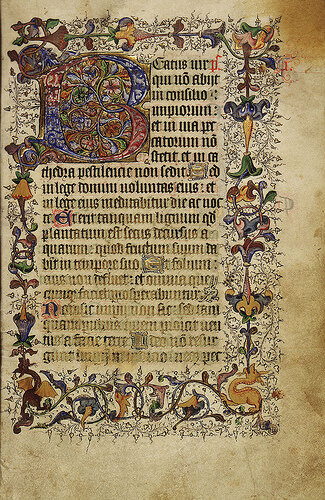 Beatus uir
qui nō abiit
in consilio
impiorum:
et in uia pec
catorum nō
stetit. et in ca
thedra pestilencie non sedit. Sed
in lege domini uoluntas eius: et
lege eius meditabitur die ac noc
te. Et erit tanquam lignum qd
plantatum est secus decursus a
quarum: quod fructum suum da
bit in tempore suo. Et folium
eius non defluet: et omnia que
cunqꝫ faciet prosperabuntur.
Non sic impii non sic: sed tam
quam puluis quem proicit uen
tus a facie terre. Ideo nō resur
gunt impii in